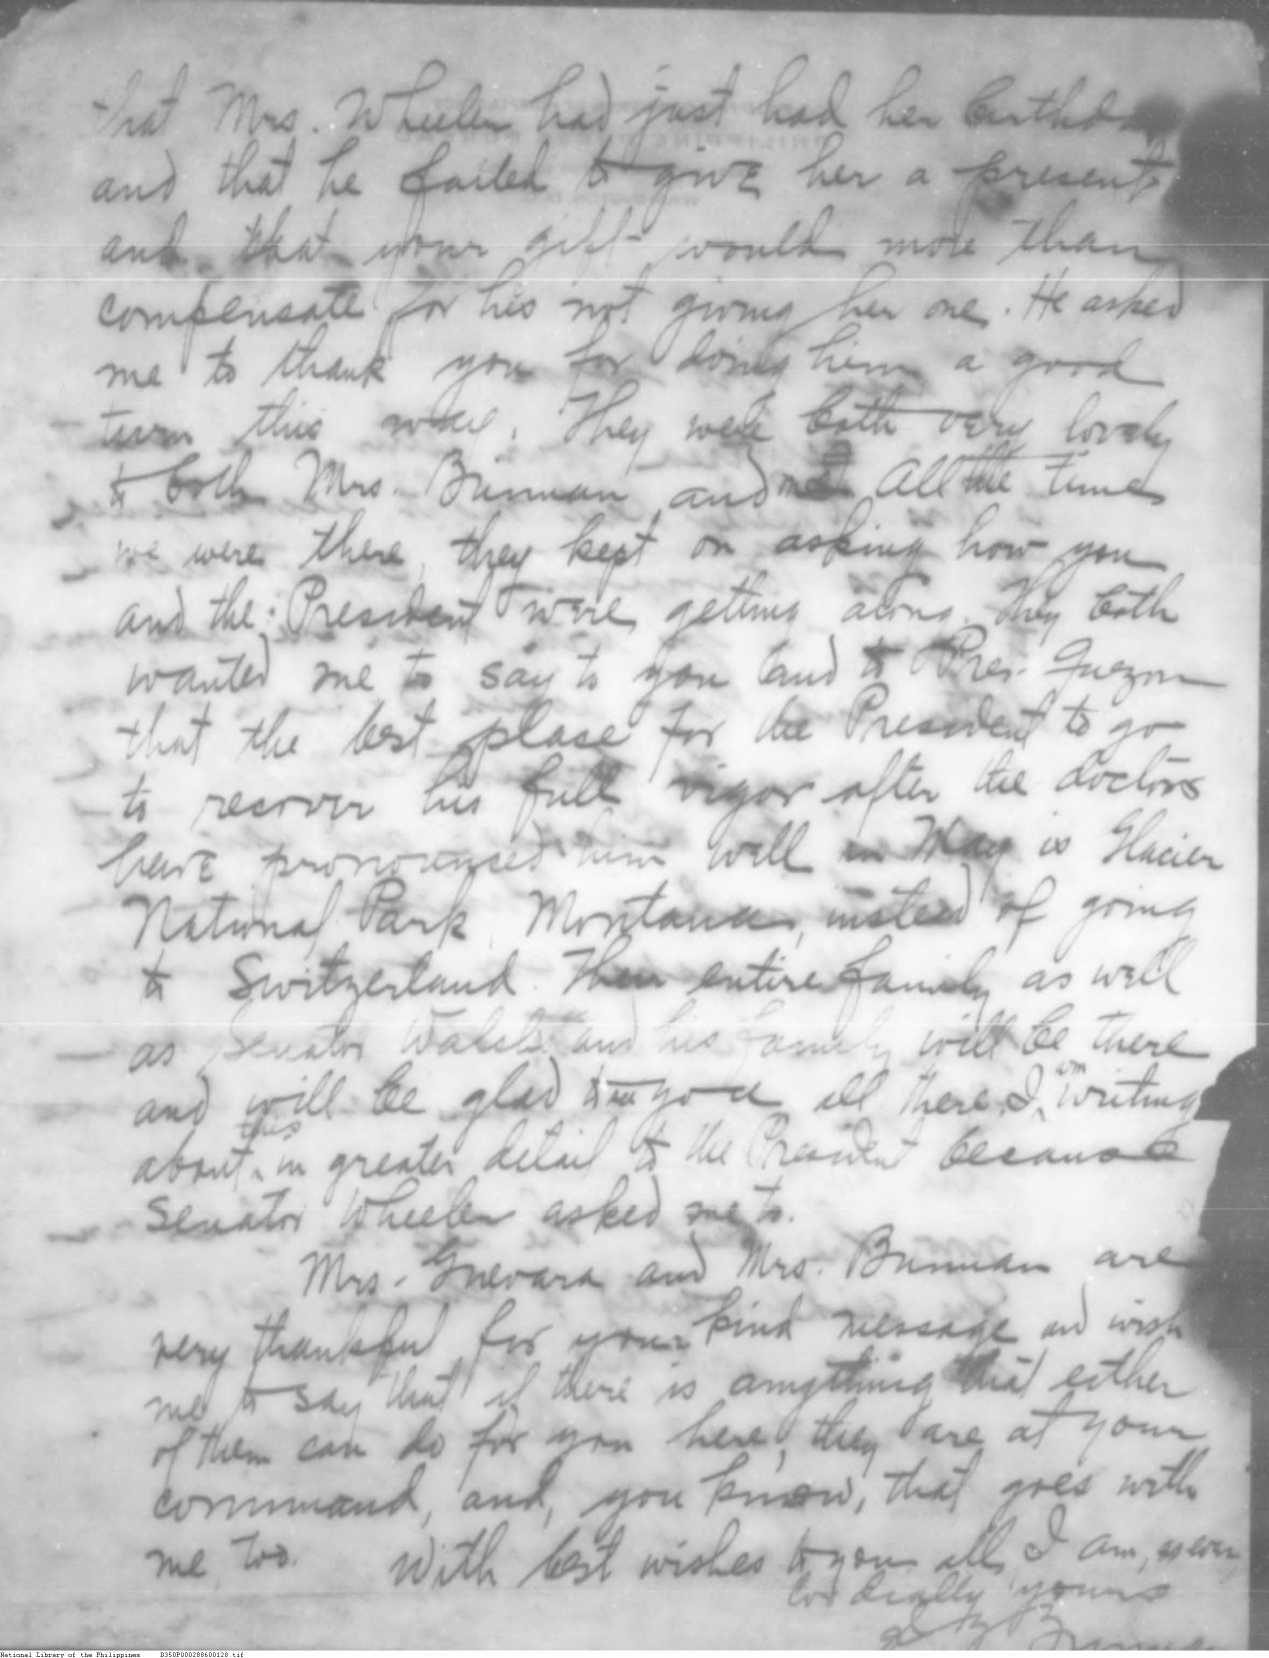 that Mrs. Wheeler had just had her birthday
and that he failed to give her a present
and that your gift would more than
compensate for his not giving her one. He asked
me to thank you for doing him a good
turn this week. They were both very lovely
to both Mrs. Brennan and me. All the time
we were there, they kept on asking how you
and the President were getting along. They both
wanted me to say to you and to Pres. Quezon
that the best place for the President to go
to recover his full vigor after the doctors
have pronounced him well in May is Glacier
National Park, Montana, instead of going
to Switzerland. Their entire family as well
as Senator Walsh and his family will be there
and will be glad to see you all there. I am writing
about this in greater detail to the President because
Senator Wheeler asked me to.
Mrs. Guevara and Mrs. Brennan are
very thankful for your kind message and wish
me to say that if there is anything that either
of them can do for you here, they are at your
command, and, you know, that goes with
me, too. With best wishes to you all, I am, as ever,
Cordially yours
National Library of the Philippines D350P000288600128.tif